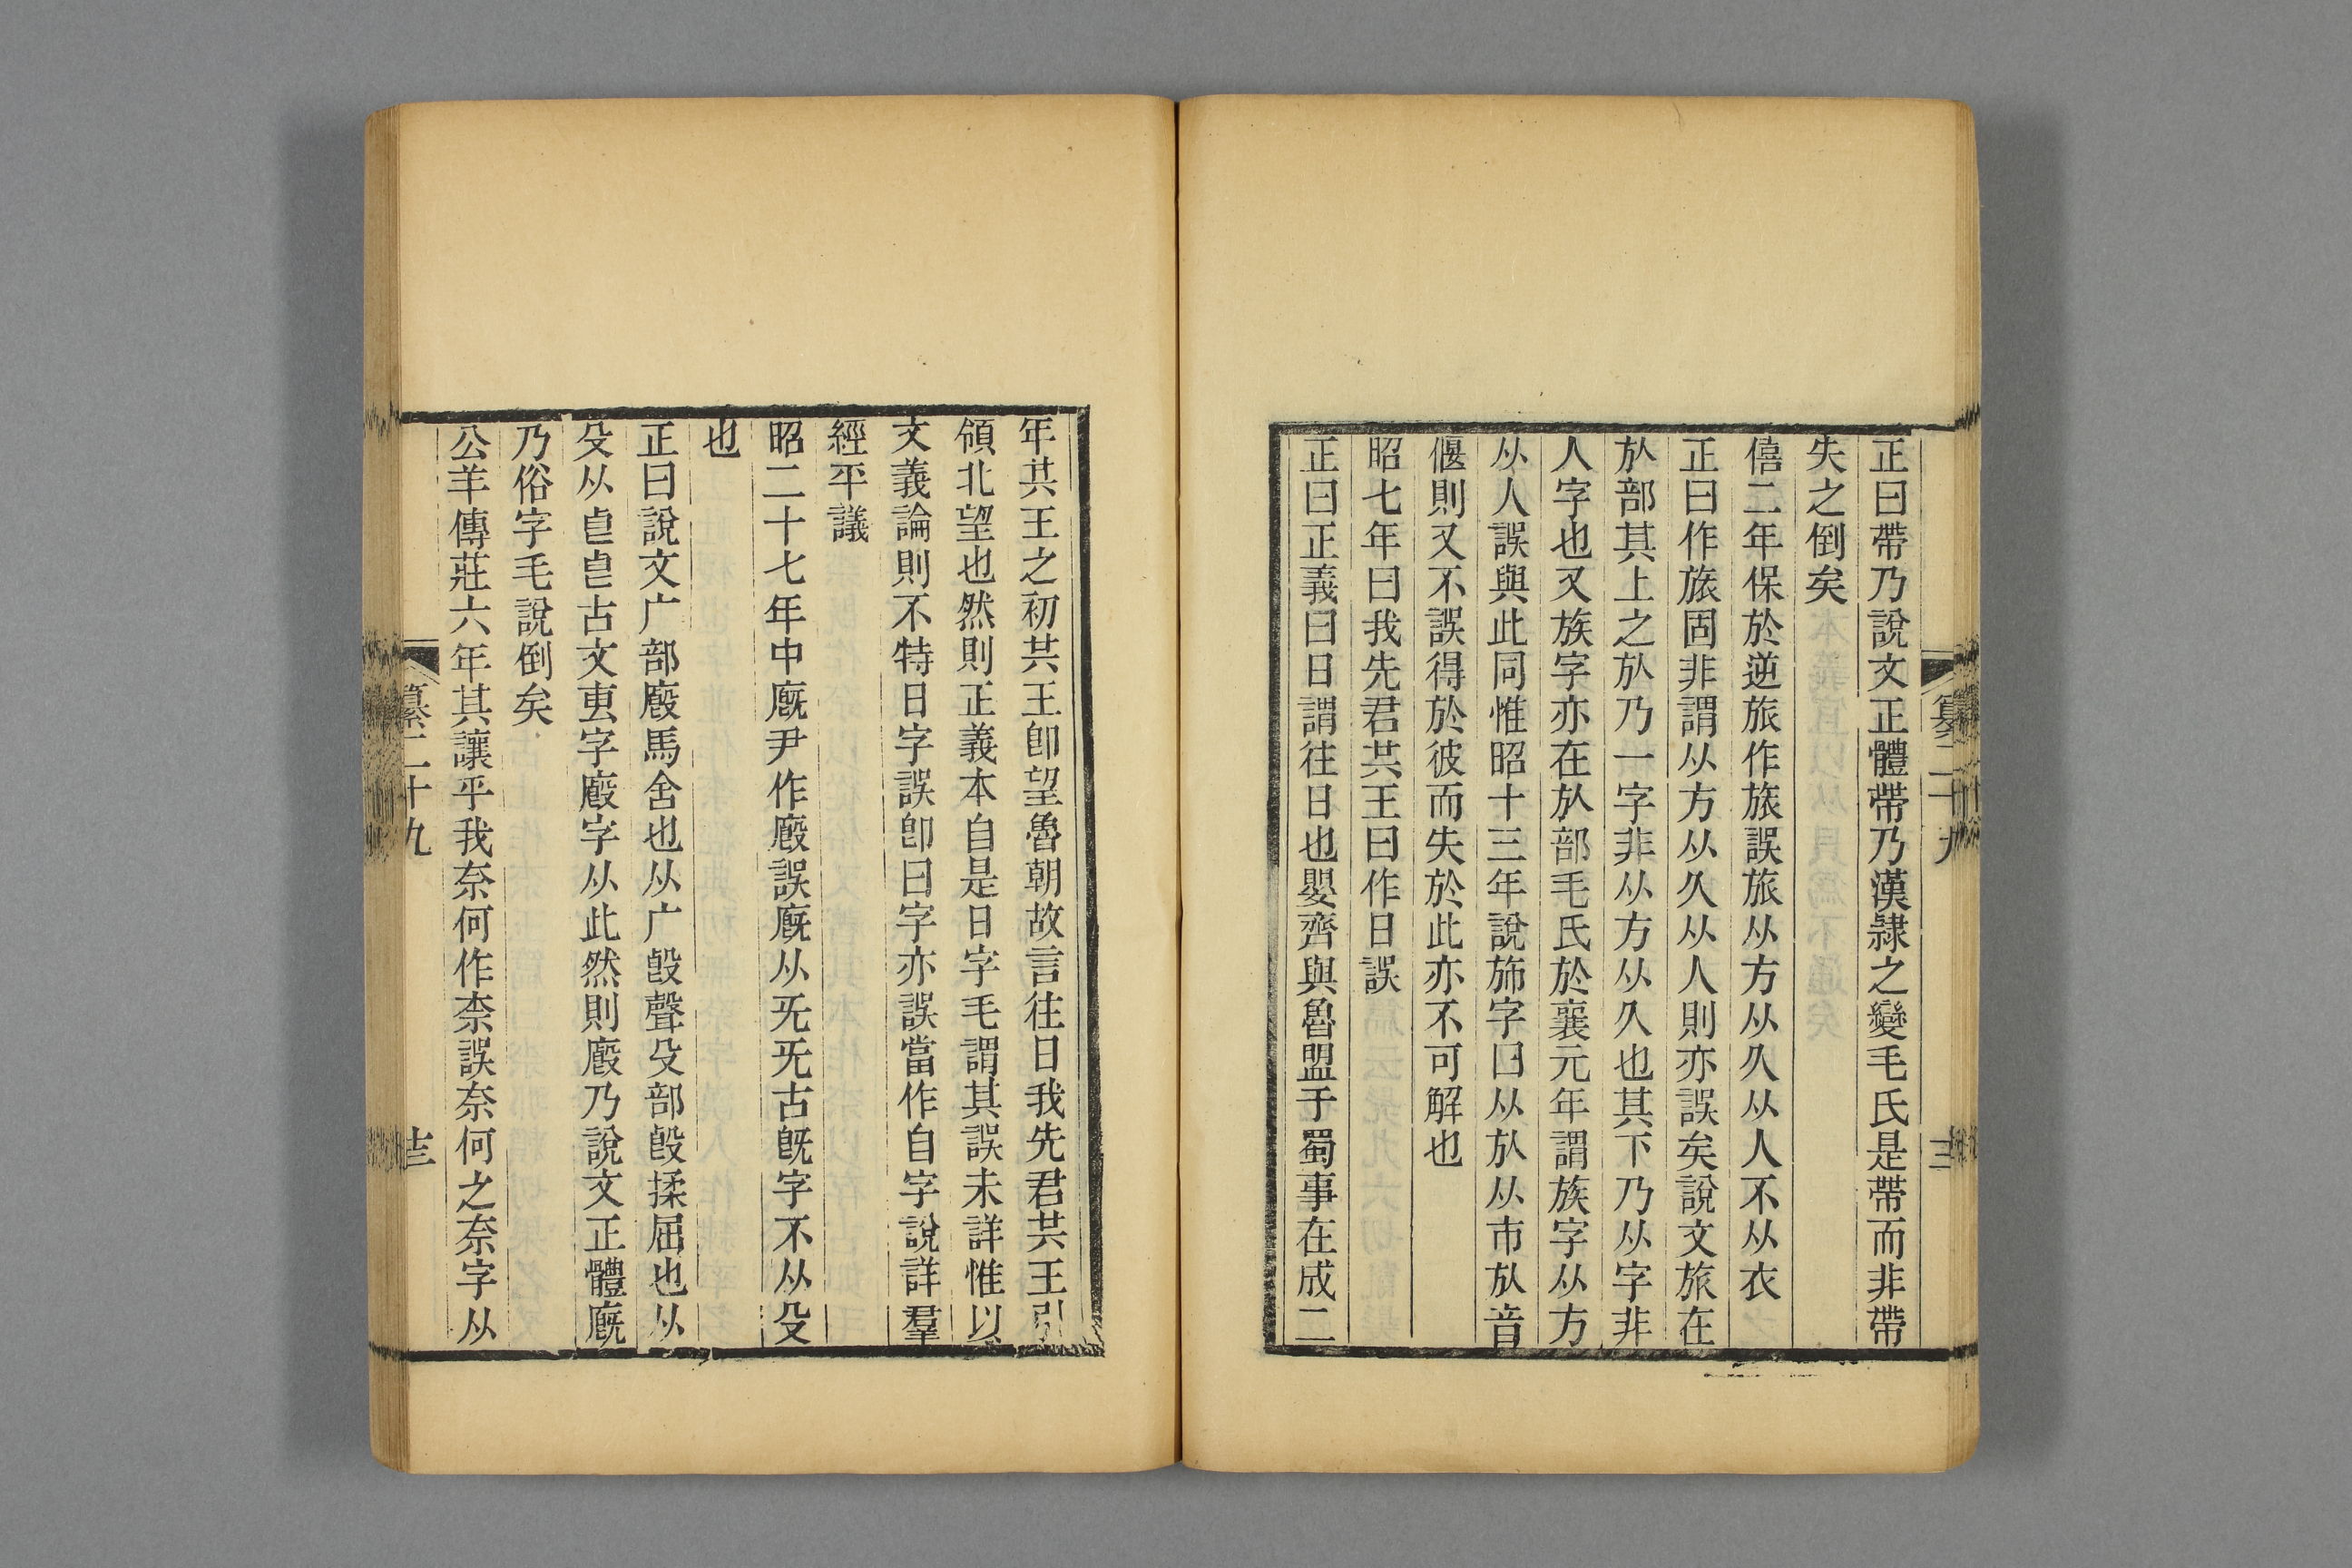 正曰帶乃說文正體帶乃漢隸之變毛氏是帶而非帶
失之倒矣
僖二年保於逆旅作旅誤旅从方从久从人不从衣
正曰作旅固非謂从方从久从人則亦誤矣說文旅在
㫃部其上之㫃乃一字非从方从久也其下乃从字非
人字也又族字亦在㫃部毛氏於襄元年謂族字从方
从人誤與此同惟昭十三年說斾字曰从㫃从巿㫃音
偃則又不誤得於彼而失於此亦不可解也
昭七年曰我先君共王曰作日誤
正曰正義曰日謂往日也嬰齊與魯盟于蜀事在成二
纂二十九
年共王之初共王卽望魯朝故言往日我先君共王引
領北望也然則正義本自是日字毛謂其誤未詳惟以
文義論則不特日字誤卽曰字亦誤當作自字說詳羣
經平議
昭二十七年中廐尹作廏誤廐从旡旡古旣字不从殳
也
正曰說文广部廏馬舍也从广㲃聲殳部㲃揉屈也从
殳从㠯㠯古文叀字廏字从此然則廏乃說文正體廐
乃俗字毛說倒矣
公羊傳莊六年其讓乎我奈何作柰誤奈何之奈字从
纂二十九